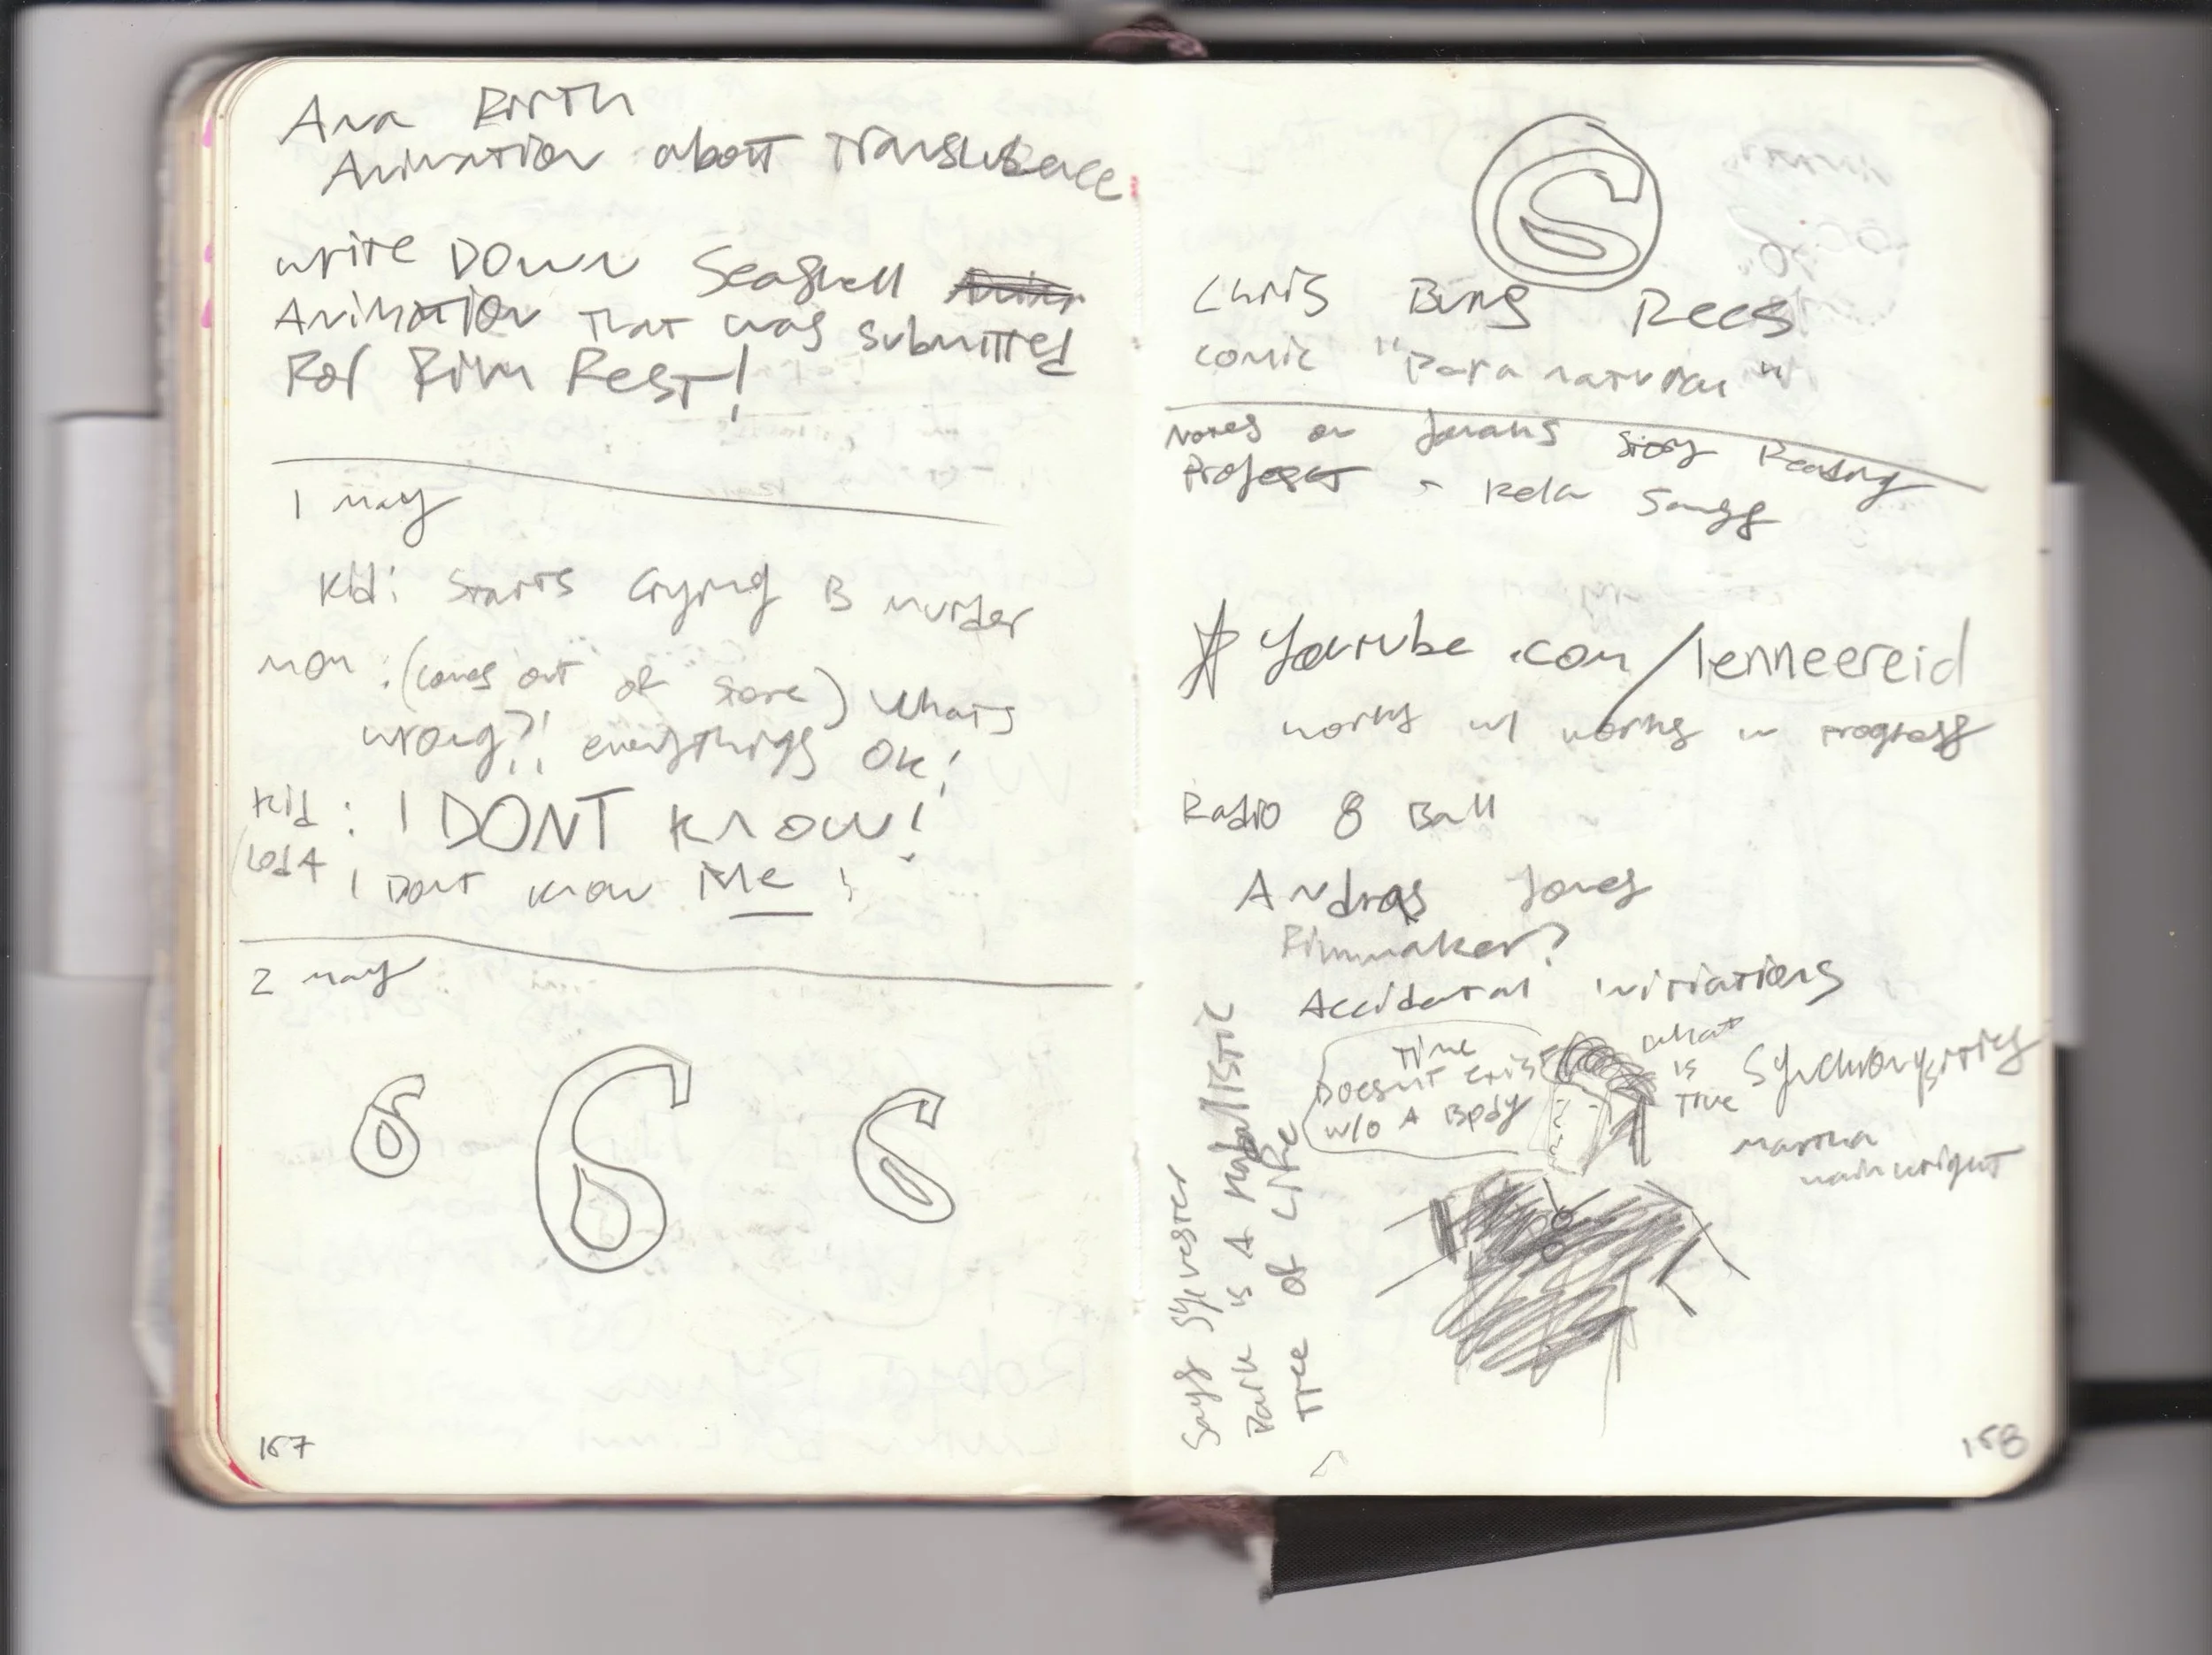 Ana
Animation about Translucence
write DOWN Seashell
Animation that was submitted
For Film Fest!
1 may
Kid: starts crying B murder
mom: (comes out of store) whats
wrong?! everythings OK!
Kid: I DONT KNOW!
I Dont know Me!
2 may
167
Chris Rees
comic "Paranatural"
Notes on Story Reading
Project -
youtube.com/lenneereid
works w/ works in progress
Radio 8 Ball
Andras Jones
Filmmaker?
Accidental initiations
Time
Doesnt exist
w/o A Body
what
is
Time
Synchronysities
martha
wainwright
Says Sylvester
Park is A Kaballistic
Tree of Life
168